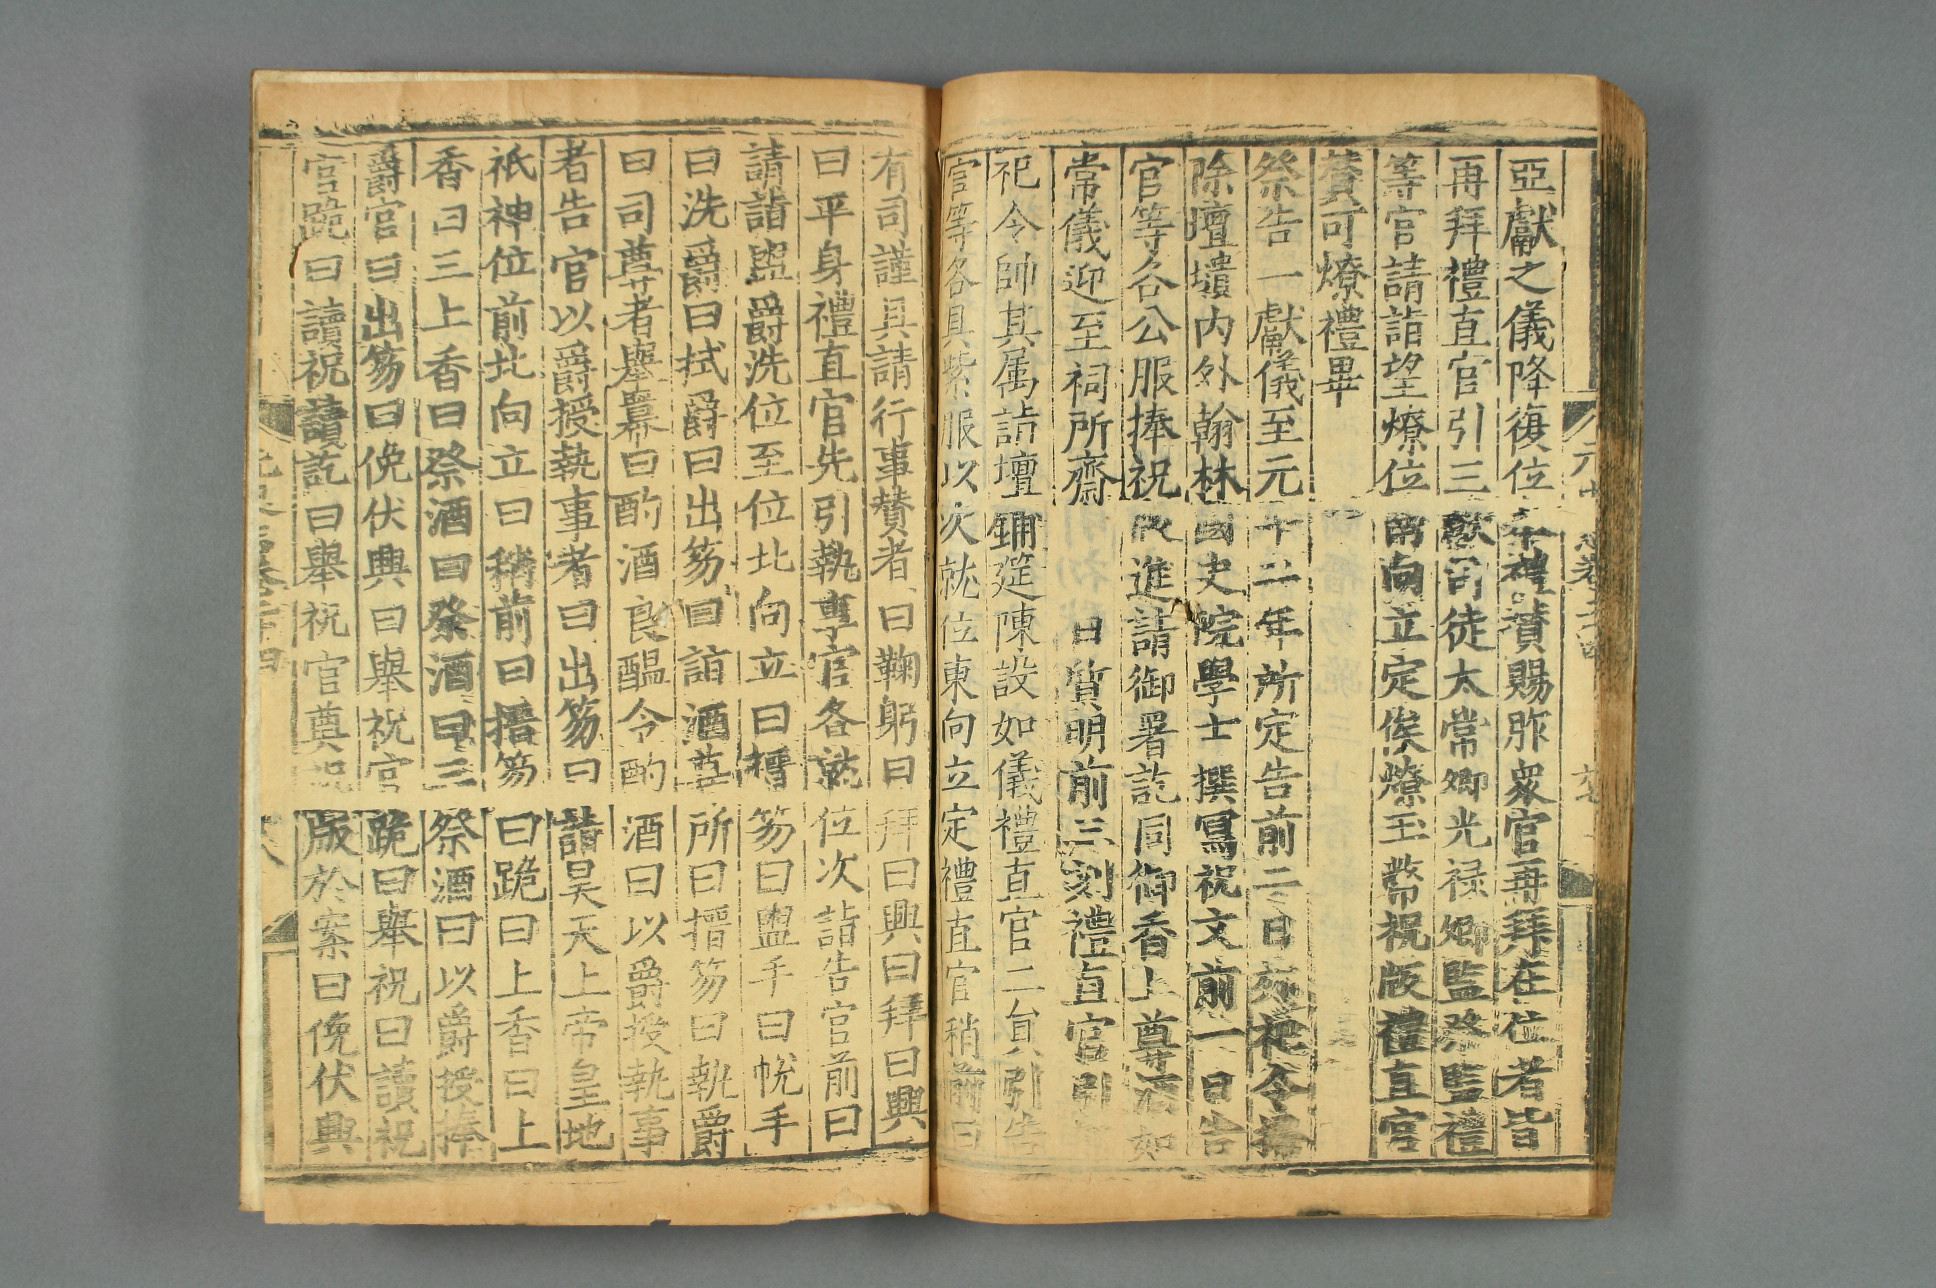 亞獻之儀降復位太禮賛賜胙衆官再拜在位者皆
再拜禮直官引三獻司徒太常卿光禄卿監祭監禮
等官請詣望燎位南向立定俟燎玉幣祝版禮直官
賛可燎禮畢
祭告一獻儀至元十二年所定告前二日郊祀令掃
除壇壝内外翰林國史院學士撰寫祝文前一日告
官等各公服捧祝版進請御署訖同御香上尊酒如
常儀迎至祠所齋 日質明前三刻禮直官引
祀令帥其属詣壇鋪筵陳設如儀禮直官二員引告
官等各具紫服以次就位東向立定禮直官稍前曰
有司謹具請行事賛者曰鞠躬曰拜曰興曰拜曰興
曰平身禮直官先引執事官各就位次詣告官前曰
請詣盥爵洗位至位北向立曰搢笏曰盥手曰帨手
曰洗爵曰拭爵曰出笏曰詣酒尊所曰搢笏曰執爵
曰司尊者擧羃曰酌酒良醖令酌酒曰以爵授執事
者告官以爵授執事者曰出笏曰詣昊天上帝皇地
祇神位前北向立曰稍前曰搢笏曰跪曰上香曰上
香曰三上香曰祭酒曰祭酒曰三祭酒曰以爵授捧
爵官曰出笏曰俛伏興曰舉祝官跪曰舉祝曰讀祝
官跪曰讀祝讀訖曰舉祝官奠祝版於案曰俛伏興